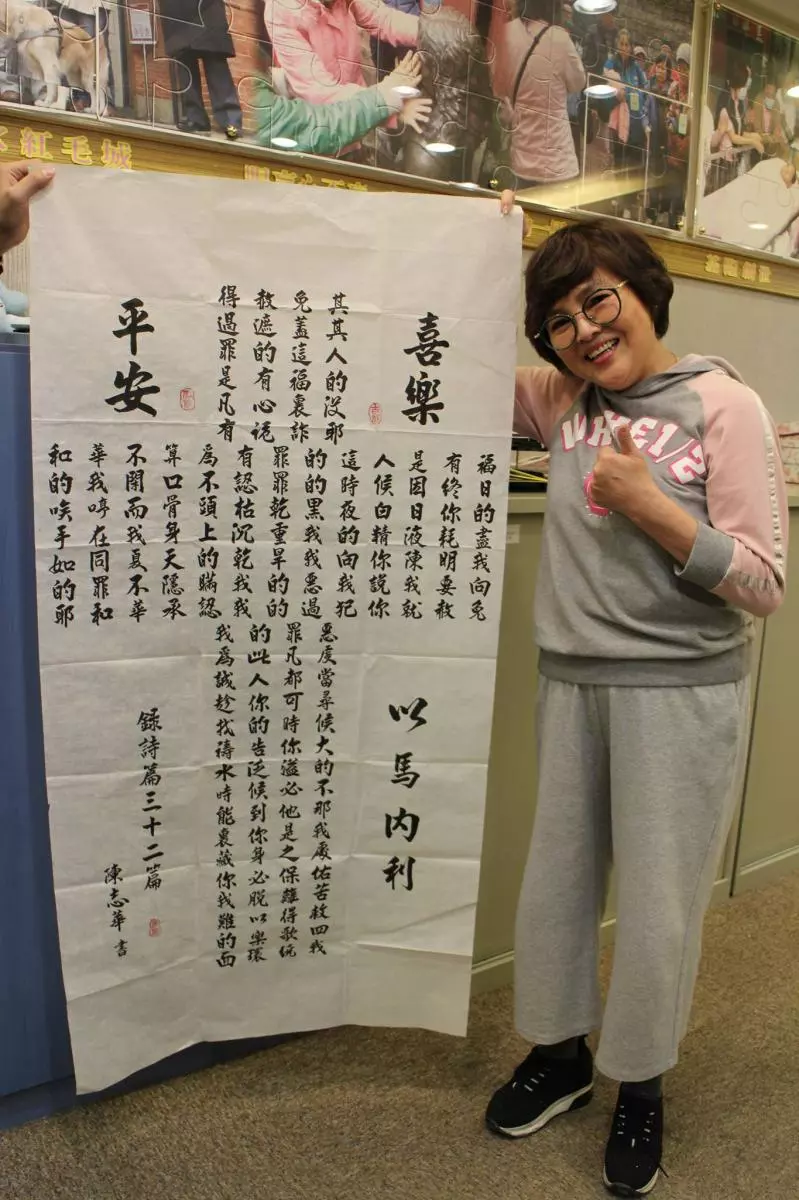 紅毛城
平安
喜樂
得赦免其
過遮蓋其
罪的這人
是有福的
凡心裏沒
有詭詐耶
和華不算為有罪的這人是有福
的我閉口不認罪的時候因終日
唉哼而骨頭枯乾黑夜白日你的
手在我身上沉重我的精液耗盡
如同夏天的乾旱我向你陳明我
的罪不隱瞞我的惡我說我要向
耶和華承認我的過犯你就赦免
我的罪惡
為此凡虔
誠人都當
趁你可尋
找的時候
禱告你大
水泛溢的
時候必不
能到他那
裏你是我
藏身之處
你必保佑
我脫離苦
難以得救
的樂歌四
面環繞我
以馬內利
錄詩篇三十二篇
陳志華書